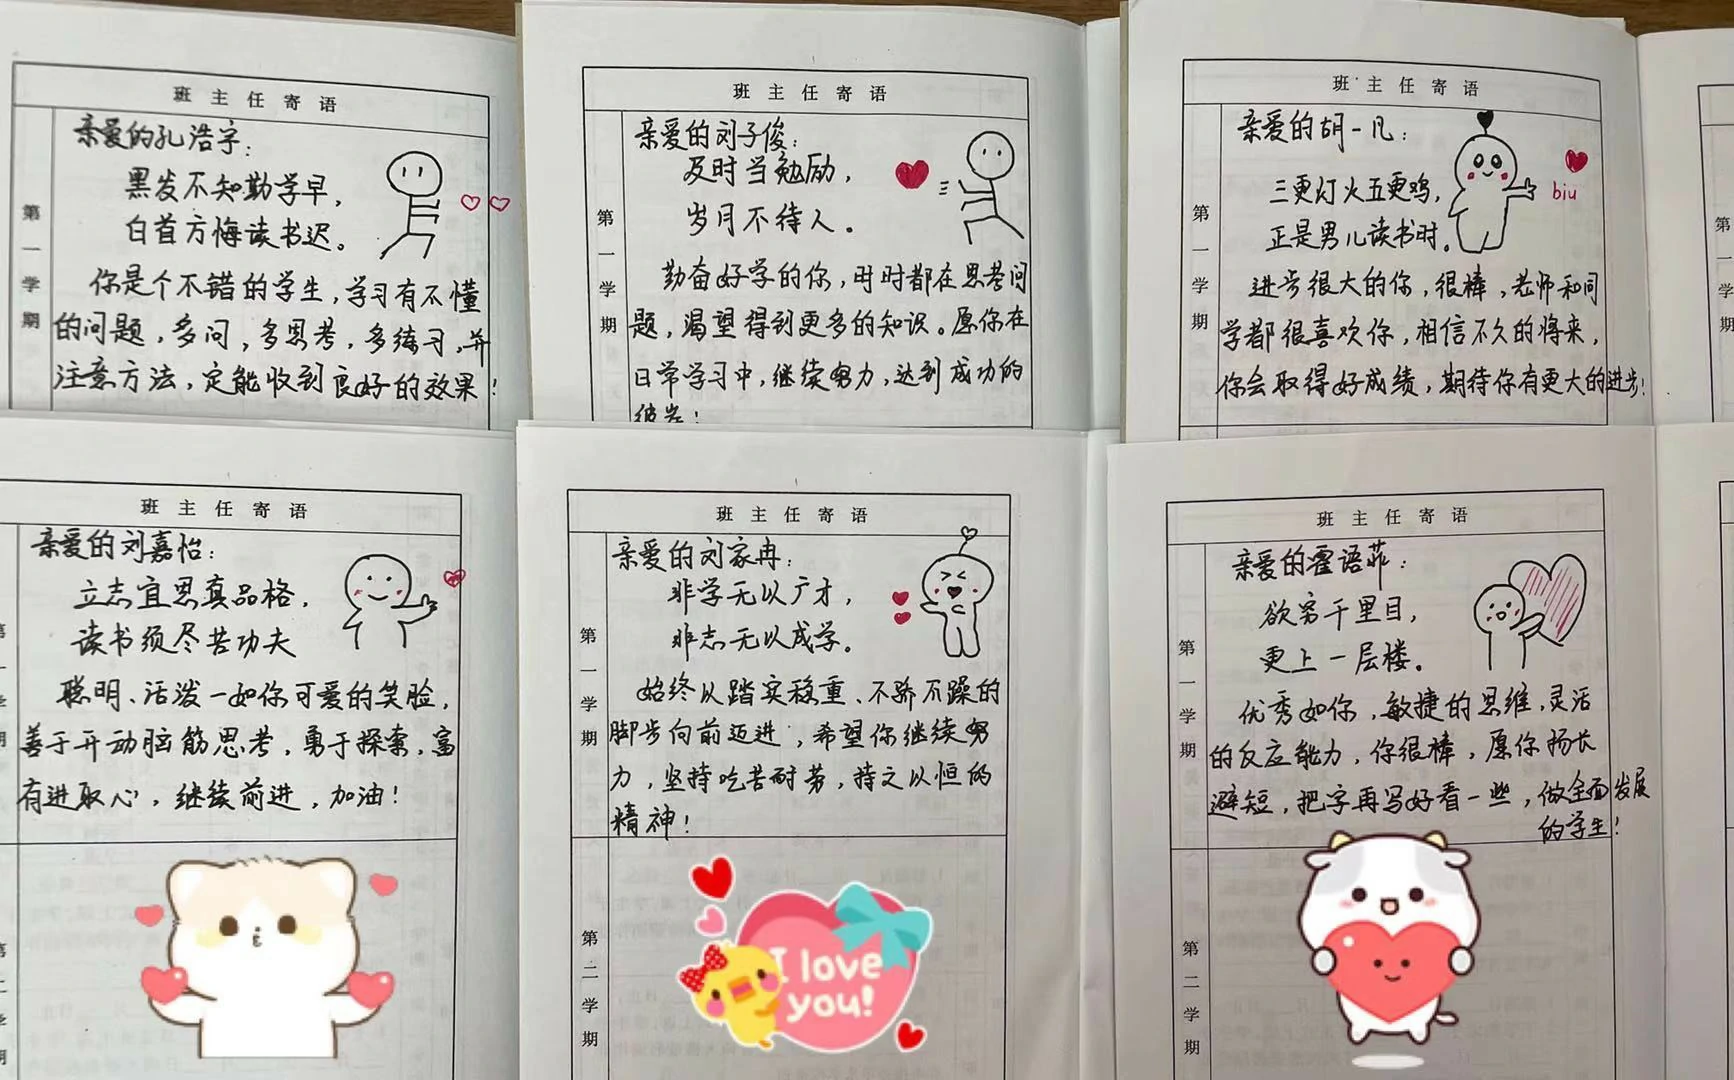 班主任寄语
第一学期
亲爱的孔浩宇:
黑发不知勤学早,
白首方悔读书迟。
你是个不错的学生,学习有不懂
的问题,多问,多思考,多练习,并
注意方法,定能收到良好的效果!
班主任寄语
第一学期
亲爱的刘子俊:
及时当勉励,
岁月不待人。
勤奋好学的你,时时都在思考问
题,渴望得到更多的知识。愿你在
日常学习中,继续努力,达到成功的
彼岸!
班主任寄语
第一学期
亲爱的胡一凡:
biu
三更灯火五更鸡,
正是男儿读书时。
进步很大的你,很棒,老师和同
学都很喜欢你,相信不久的将来,
你会取得好成绩,期待你有更大的进步!
第一学期
班主任寄语
亲爱的刘嘉怡:
立志宜思真品格,
读书须尽苦功夫
聪明、活泼一如你可爱的笑脸,
善于开动脑筋思考,勇于探索,富
有进取心,继续前进,加油!
班主任寄语
第一学期
亲爱的刘家冉:
非学无以广才,
非志无以成学。
始终以踏实稳重、不骄不躁的
脚步向前迈进,希望你继续努
力,坚持吃苦耐劳,持之以恒的
精神!
第二学期
I love
you!
班主任寄语
第一学期
亲爱的霍语菲:
欲穷千里目,
更上一层楼。
优秀如你,敏捷的思维,灵活
的反应能力,你很棒,愿你扬长
避短,把字再写好看一些,做全面发展
的学生!
第二学期